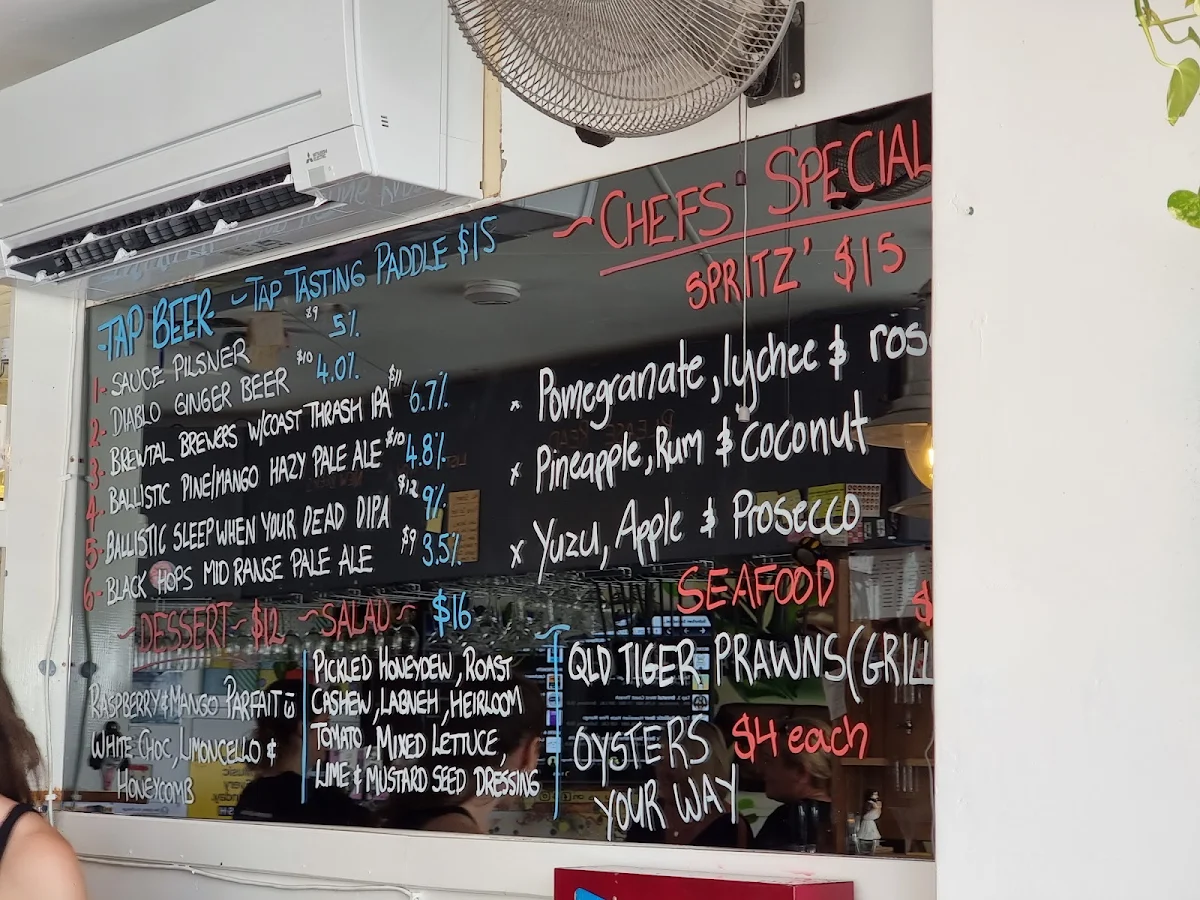 MITSUBISHI ELECTRIC
-TAP BEER- ~TAP TASTING PADDLE $15
1- SAUCE PILSNER $9 5%
2- DIABLO GINGER BEER $10 4.0%
3- BREWTAL BREWERS W/COAST THRASH IPA $11 6.7%
4- BALLISTIC PINE/MANGO HAZY PALE ALE $10 4.8%
5- BALLISTIC SLEEP WHEN YOUR DEAD DIPA $12 9%
6- BLACK HOPS MID RANGE PALE ALE $9 3.5%
~DESSERT~ $12
RASPBERRY & MANGO PARFAIT
WHITE CHOC, LIMONCELLO &
HONEYCOMB
~SALAD~ $16
PICKLED HONEYDEW, ROAST
CASHEW, LABNEH, HEIRLOOM
TOMATO, MIXED LETTUCE,
LIME & MUSTARD SEED DRESSING
~CHEFS' SPECIAL
SPRITZ' $15
x Pomegranate, lychee & ros
x Pineapple, Rum & Coconut
x Yuzu, Apple & Prosecco
SEAFOOD $
QLD TIGER PRAWNS (GRILL
OYSTERS $4 each
YOUR WAY